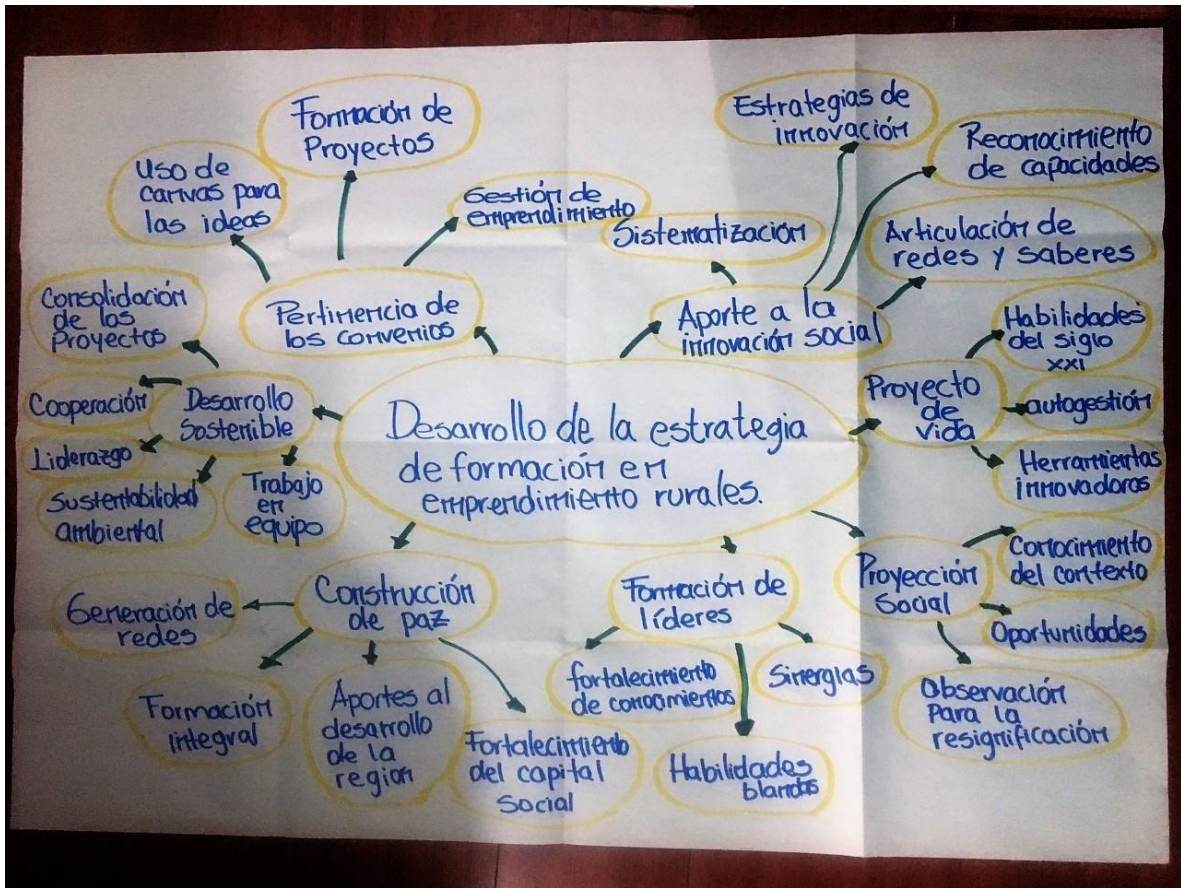 Desarrollo de la estrategia
de formación en
emprendimiento rurales.
Pertinencia de
los convenios
Uso de
canvas para
las ideas
Formación de
Proyectos
Gestión de
emprendimiento
Aporte a la
innovación social
Sistematización
Estrategias de
innovación
Reconocimiento
de capacidades
Articulación de
redes y saberes
Proyecto
de
vida
Habilidades
del siglo
XXI
autogestión
Herramientas
innovadoras
Proyección
Social
Conocimiento
del contexto
Oportunidades
Observación
Para la
resignificación
Formación de
líderes
fortalecimiento
de conocimientos
Habilidades
blandas
Sinergias
Construcción
de paz
Generación de
redes
Formación
integral
Aportes al
desarrollo
de la
region
Fortalecimiento
del capital
Social
Desarrollo
Sostenible
Consolidación
de los
Proyectos
Cooperación
Liderazgo
Sustentabilidad
ambiental
Trabajo
en
equipo